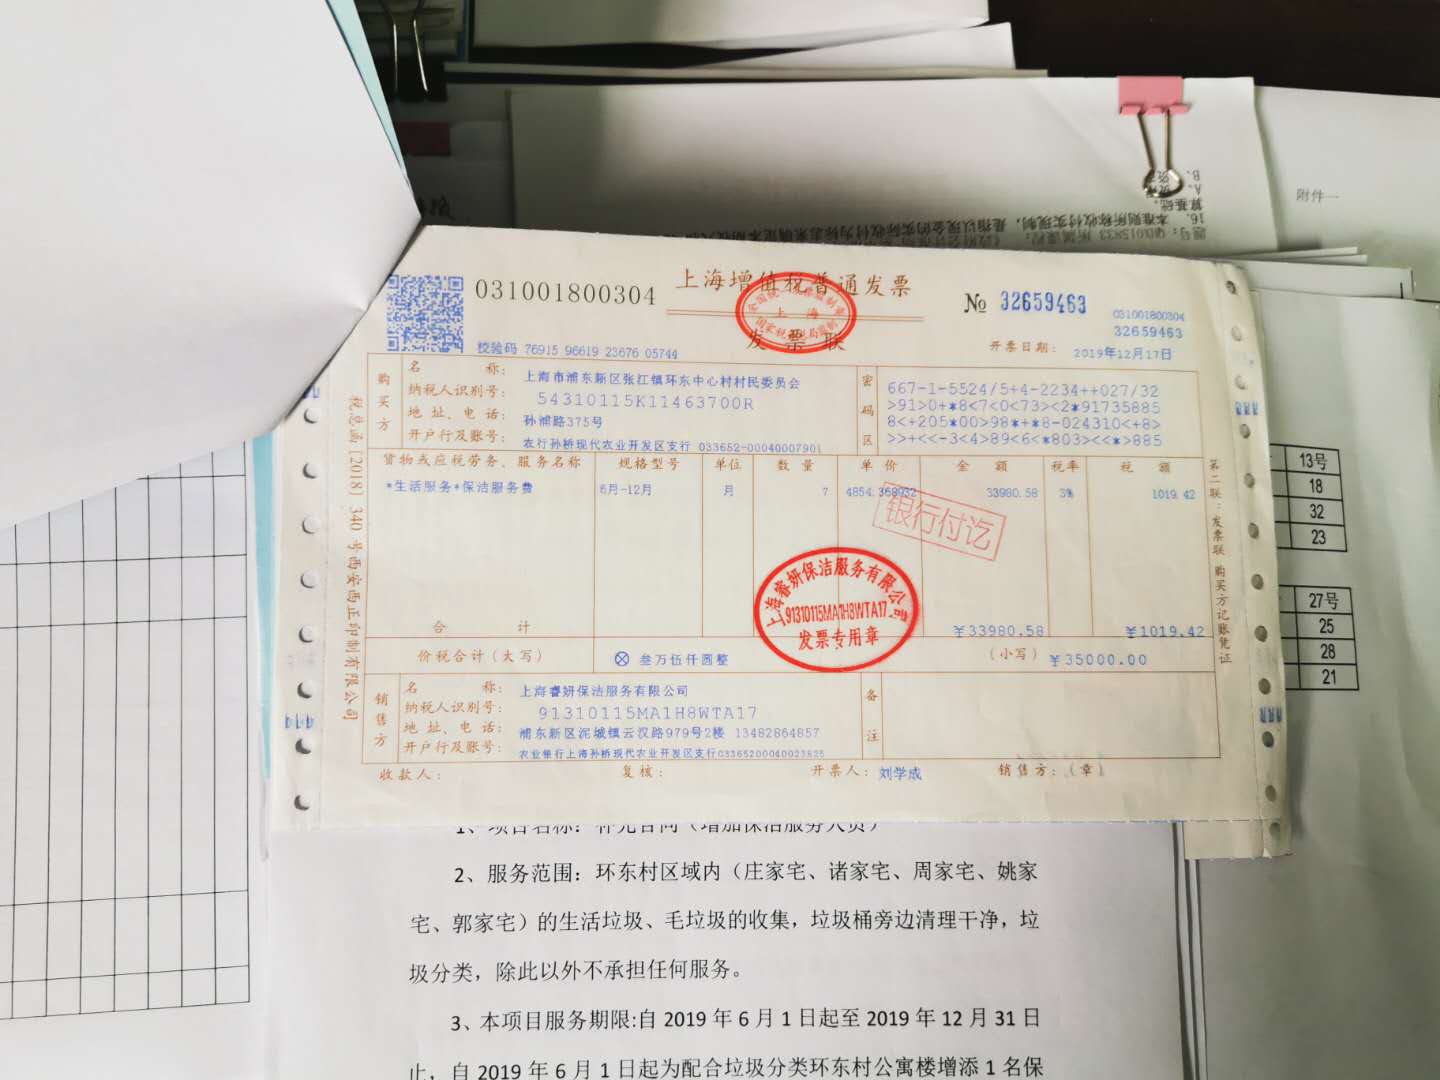 附件一
031001800304
上海增值税普通发票
发票联
全国统一发票监制章
上海
国家税务总局监制
№ 32659463
031001800304
32659463
校验码 76915 96619 23676 05744
开票日期: 2019年12月17日
购买方
名称: 上海市浦东新区张江镇环东中心村村民委员会
纳税人识别号: 54310115K11463700R
地址、电话: 孙浦路375号
开户行及账号: 农行孙桥现代农业开发区支行 033652-00040007901
密码区
667-1-5524/5+4-2234++027/32
>91>0+*8<7<0<73><2*91735885
8<+205*00>98*+*8-024310<+8>
>>+<<-3<4>89<6<*803><<*>885
货物或应税劳务、服务名称 规格型号 单位 数量 单价 金额 税率 税额
*生活服务*保洁服务费 6月-12月 月 7 4854.368932 33980.58 3% 1019.42
银行付讫
上海睿妍保洁服务有限公司
91310115MA1H8WTA17
发票专用章
合计 ¥33980.58 ¥1019.42
价税合计(大写) ⊗ 叁万伍仟圆整 (小写) ¥35000.00
销售方
名称: 上海睿妍保洁服务有限公司
纳税人识别号: 91310115MA1H8WTA17
地址、电话: 浦东新区泥城镇云汉路979号2楼 13482864857
开户行及账号: 农业银行上海孙桥现代农业开发区支行03365200040023825
备注
收款人: 复核: 开票人: 刘学成 销售方:(章)
税总函[2018] 340 号西安西正印制有限公司
第二联:发票联 购买方记账凭证
13号
18
32
23
27号
25
28
21
1、项目名称:补充合同(增加保洁服务人员)
2、服务范围:环东村区域内(庄家宅、诸家宅、周家宅、姚家
宅、郭家宅)的生活垃圾、毛垃圾的收集,垃圾桶旁边清理干净,垃
圾分类,除此以外不承担任何服务。
3、本项目服务期限:自 2019 年 6 月 1 日起至 2019 年 12 月 31 日
止,自 2019 年 6 月 1 日起为配合垃圾分类环东村公寓楼增添 1 名保